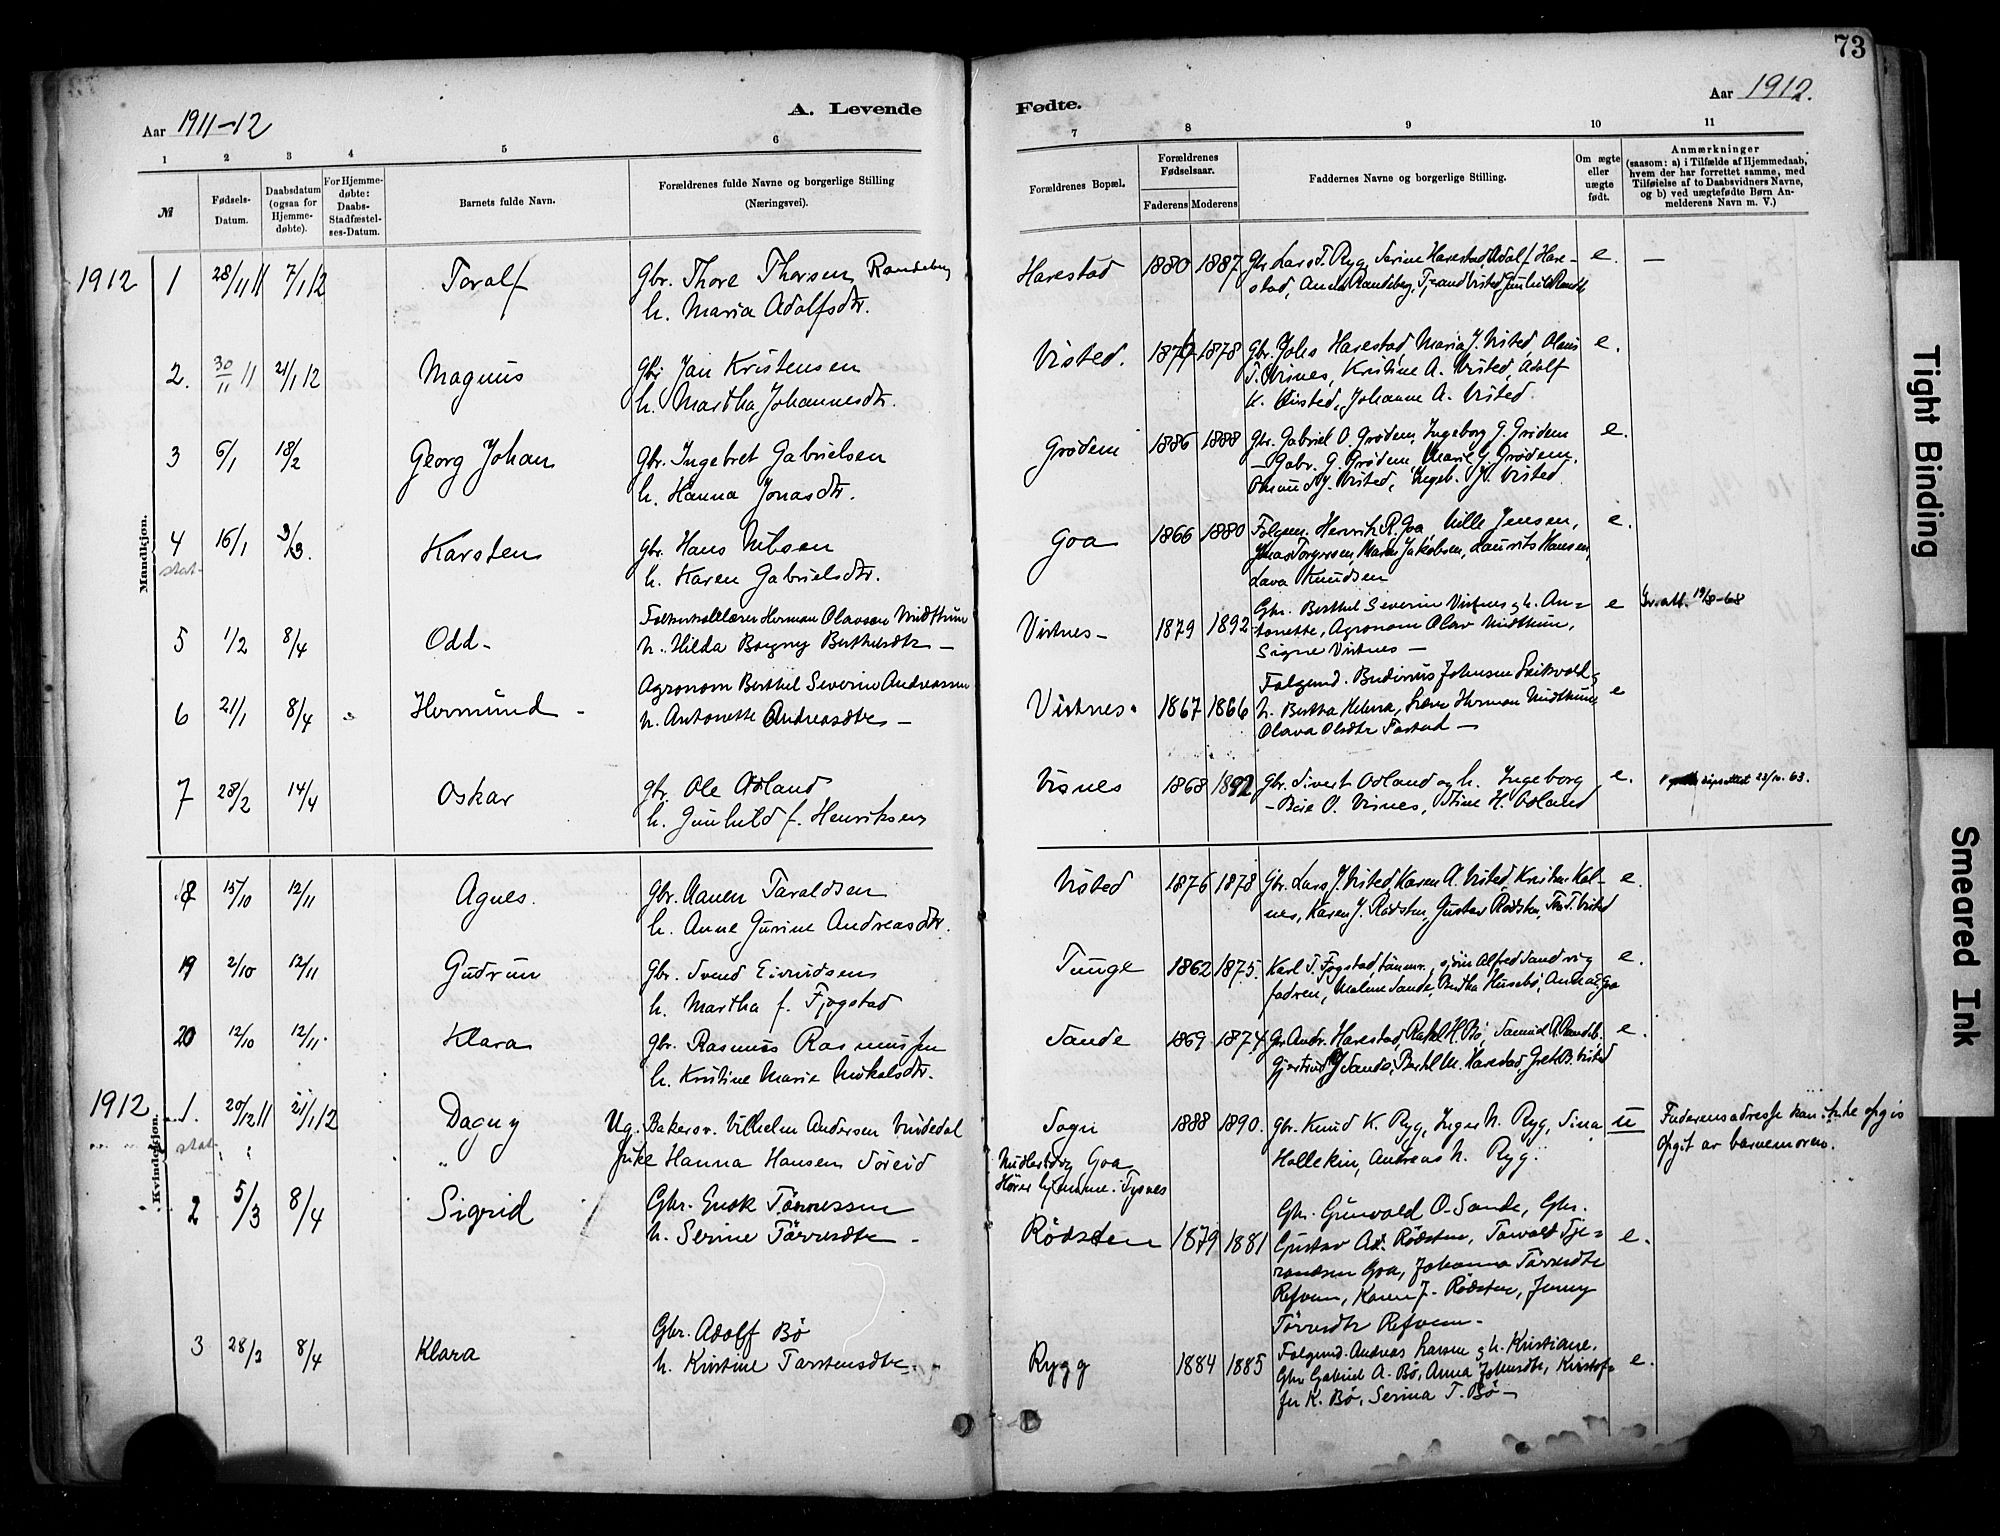 73
Aar 1911-12
A. Levende
Fødte.
Aar 1912.
1 2 3 4 5 6 7 8 9 10 11
№
Fødsels-Datum.
Daabsdatum (ogsaa for Hjemme-døbte).
For Hjemme-døbte: Daabs-Stadfæstel-ses-Datum.
Barnets fulde Navn.
Forældrenes fulde Navne og borgerlige Stilling
(Næringsvei).
Forældrenes Bopæl.
Forældrenes Fødselsaar.
Faderens Moderens
Faddernes Navne og borgerlige Stilling.
Om ægte eller uægte født.
Anmærkninger
(saasom: a) i Tilfælde af Hjemmedaab,
hvem der har forrettet samme, med
Tilføielse af to Daabsvidners Navne,
og b) ved uægtefødte Børn An-
melderens Navn m. V.)
Mandkjøn.
1912 1 28/11 11 7/1 12 Toralf
Gbr. Thore Thorsen, Randeberg
h. Maria Adolfsdtr.
Harestad 1880 1887
Gbr. Lars T. Ryg, Serine Harestad, Adolf Hare-
stad, Anna Randeberg, Tjerand Visted,
e. —
2. 30/11 11 21/1 12 Magnus
Gbr. Jan Kristensen
h. Martha Johannesdtr.
Visted. 1878
Gbr. Johs Harestad, Maria J. Visted, Olaus
T. Visnes, Kristine A. Visted, Adolf
K. Visted, Johanne A. Visted.
e.
3 6/1 18/2 Georg Johan
Gbr. Ingebret Gabrielsen
h. Hanna Jonasdtr.
Grødem 1886 1888
Gbr. Gabriel O. Grødem, Ingeborg G. Grødem
- Gabr. G. Grødem, Marie G. Grødem,
Omund J. Visted, Ingeb. J. Visted.
e.
4 16/1 3/3. Karsten
stat-
Gbr. Hans Nilsen
h. Karen Gabrielsdtr.
Goa 1866 1880
Følgem. Henrik R. Goa, Nille Jensen,
Jonas Torgersen, Maren Jakobsen, Laurits Hansen,
Lava Knudsen
e.
5 1/2 8/4 Odd-
Herman Olavsen Midthun
h. Hilda Borgny Berthelsdtr —
Vistnes- 1879 1892
Gbr. Berthel Severin Vistnes og h. An=
tonette, Agronom Olav Midthun,
Signe Vistnes —
e
19/8-68
6 21/1 8/4 Hermund -
Agronom Berthel Severin Andreassen
h. Antonette Andreasdtr —
Vistnes. 1867 1866
h. Bertha Helena, Lærer Herman Midthun,
Olava Olsdtr Tastad —
e
7 28/2 14/4 Oskar
gbr. Ole Odland
h. Gunhild f. Henriksen
Visnes 1868 1892
Gbr. Sivert Odland og h. Ingeborg
- Beie O. Visnes, Stine H. Odland
e.
22/10-63.
Kvindekjøn.
18 15/10 12/11 Agnes.
gbr. Aanen Taraldsen
h. Anne Gurine Andreasdtr.
Visted 1876 1878
Gbr. Lars J. Visted, Karen A. Visted, Kristine Kal-
nes, Karen J. Rødsten, Gustav Rødsten, T. Visted
e.
19 2/10 12/11 Gudrun
Gbr. Svend Eivindsen
h. Martha f. Fjogstad
Tunge 1862 1875.
Karl T. Fjogstad, tømmr., sjøm Alfred Sandvig
fadren, Malene Sande, Bertha Husebø,
e.
20 12/10 12/11. Klara
gbr. Rasmus Rasmussen
h. Kristine Marie Mikalsdtr.
Sande 1869 1874
Gbr Andr. Harestad, Rakel H. Bø, Samuel A. Randeb.
Gjertrud J Sande, Bertel M. Harestad, Greth B. Visted
e.
1912 1. 20/12 11 21/1 12 Dagny
stat-
Ug. Bakersv. Vilhelm Andersen Vindedal
Pike Hanna Hansen Søreid
Sogn
Goa
Hører hjemme i Tysnes
1888 1890.
Gbr. Knud K. Ryg, Inger N. Ryg, Sina
Hollekim, Andreas N. Ryg.
u
Faderens adresse kan ikke opgis
Opgit av barnemoren.
2 5/3 8/4 Sigrid
Gbr. Enok Tønnessen
h. Serine Tørresdtr -
Rødsten 1879 1881
Gbr. Grunvald O. Sande, Gbr.
Gustav Ad. Rødsten, Torvald Tje=
randsen Goa, Johanna Tørresdtr
Refvem, Karen J. Rødsten, Jenny
Tørresdtr Refvem-
e.
3 28/3 8/4 Klara
Gbr. Adolf Bø
h. Kristine Torstensdtr
Rygg 1884 1885
Følgemd. Andreas Larsen og h. Kristiane.
Gbr Gabriel A. Bø, Anna Johnsdtr, Kristof=
fer K. Bø, Serina T. Bø —
e.
Tight Binding
Smeared Ink